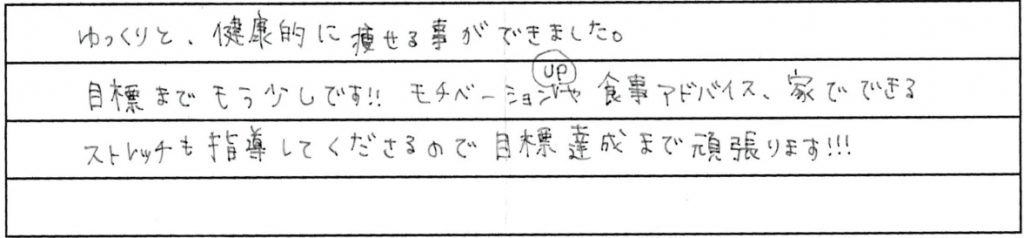 ゆっくりと、健康的に痩せる事ができました。
目標までもう少しです!! モチベーションUPや食事アドバイス、家でできる
ストレッチも指導してくださるので目標達成まで頑張ります!!!